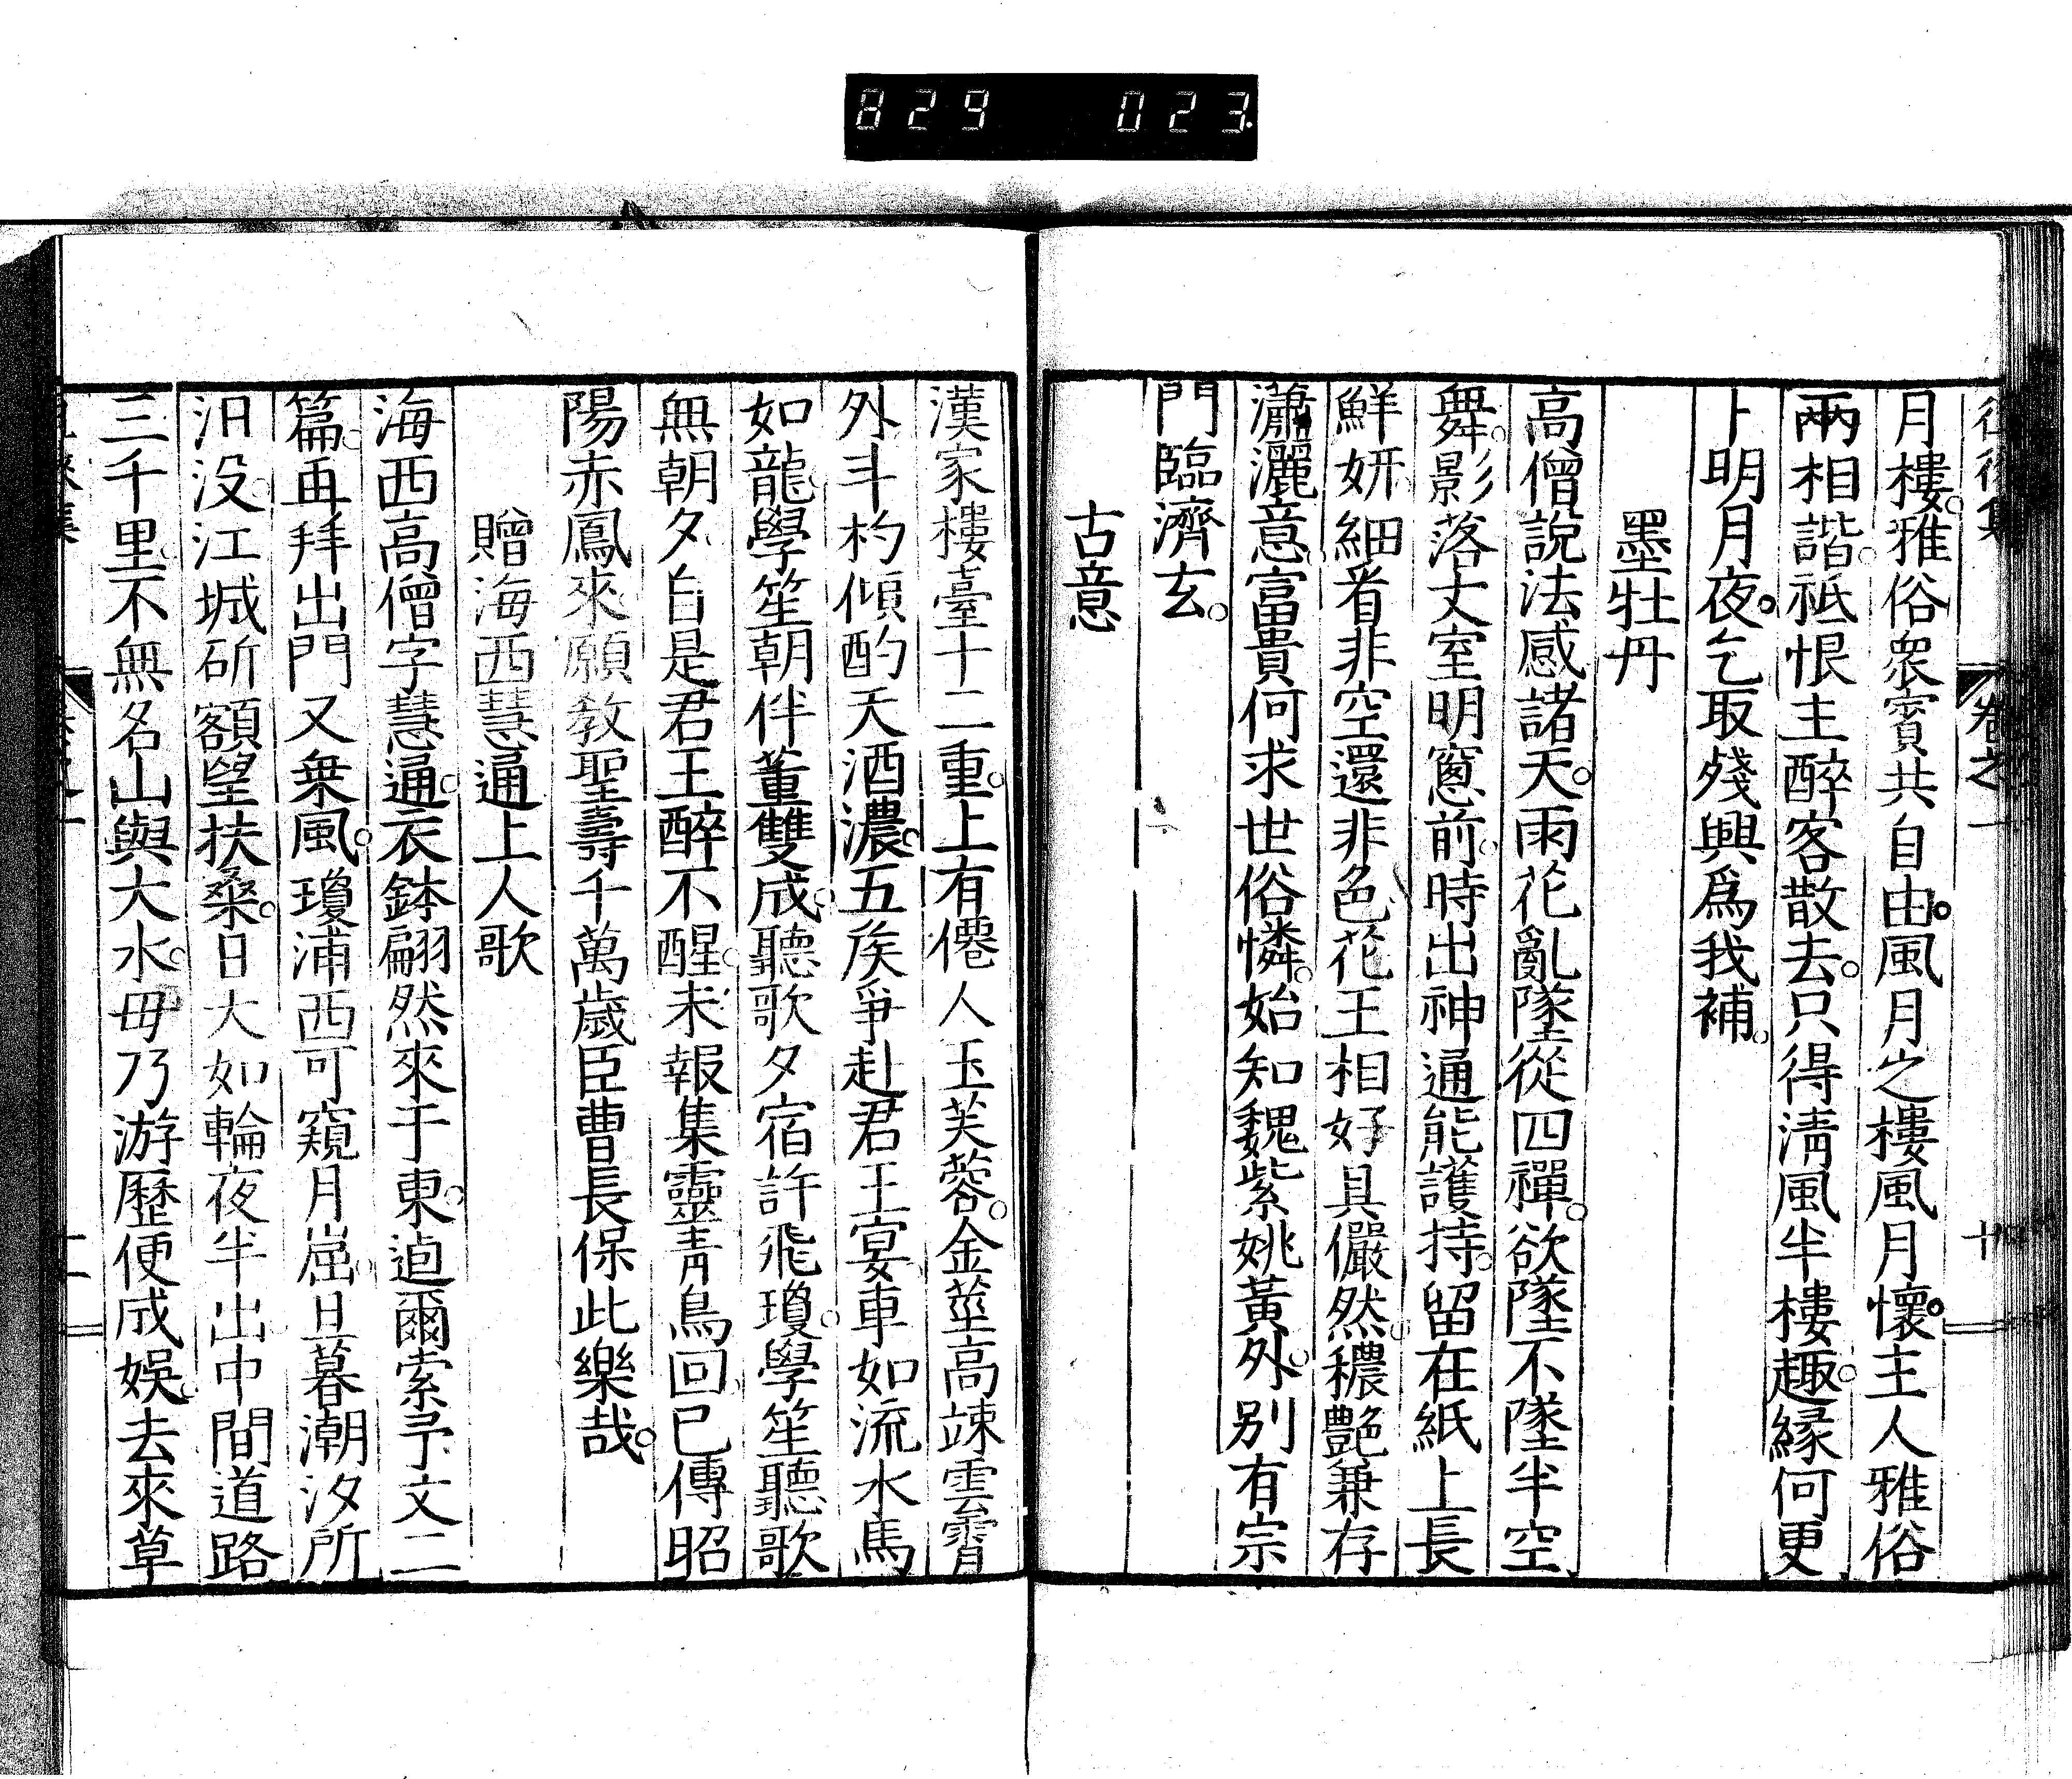 829 023.
月樓。雅俗衆賓共自由。風月之樓風月懷。主人雅俗
兩相諧。祗恨主醉客散去。只得淸風半樓趣。緣何更
卜明月夜。乞取殘興爲我補。
墨牡丹
高僧說法感諸天。雨花亂墜從四禪。欲墜不墜半空
舞。影落丈室明窻前。時出神通能護持。留在紙上長
鮮妍。細看非空還非色。花王相好具儼然。穠艷兼存
瀟灑意。富貴何求世俗憐。始知魏紫姚黃外。別有宗
門臨濟玄。
古意
漢家樓臺十二重。上有僊人玉芙蓉。金莖高竦雲霄
外。斗杓傾酌天酒濃。五矦爭赴君王宴。車如流水馬
如龍。學笙朝伴董雙成。聽歌夕宿許飛瓊。學笙聽歌
無朝夕。自是君王醉不醒。未報集靈靑鳥回。已傳昭
陽赤鳳來。願教聖壽千萬歲。臣曹長保此樂哉。
贈海西慧通上人歌
海西高僧字慧通。衣鉢翩然來于東。逌爾索予文二
篇。再拜出門又乘風。瓊浦西可窺月窟。旦暮潮汐所
汨没。江城斫額望扶桑。日大如輪夜半出。中間道路
三千里。不無名山與大水。毋乃游歷便成娛。去來草
卷之一